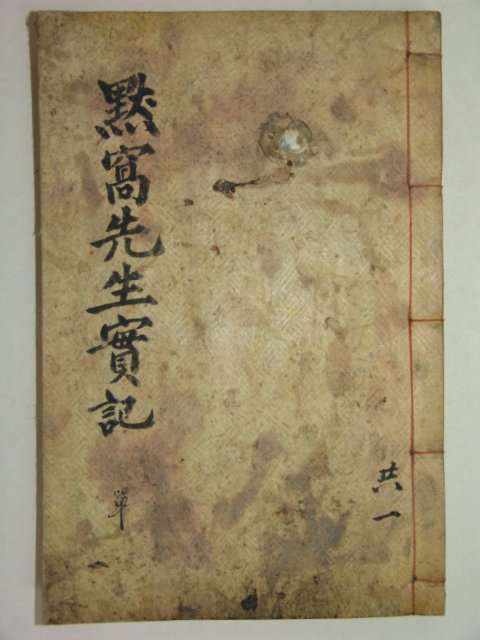 黙窩先生實記
單
一
共一